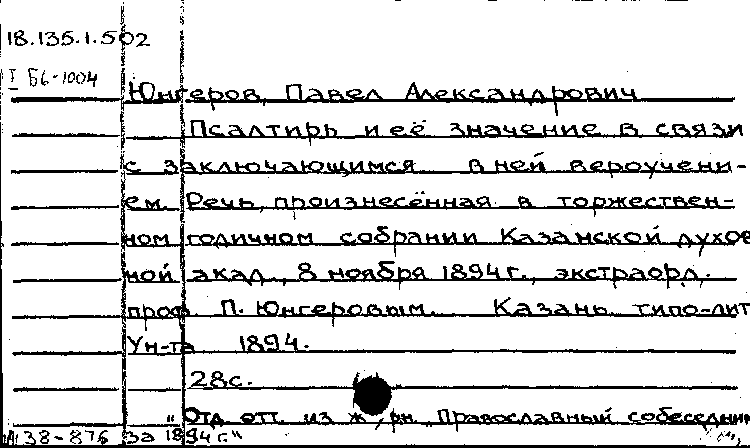 18.135.1.502
I Б6-1004
Юнгеров, Павел Александрович
Псалтирь и её значение в связи
с заключающимся в ней вероучени-
ем. Речь, произнесённая в торжествен-
ном годичном собрании Казанской духов
ной акад., 8 ноября 1894 г., экстраорд.
проф. П. Юнгеровым. Казань. типо-лит
Ун-та 1894.
28 с.
"Отд. отт. из журн. Православный собеседник
38-876 за 1894 г."